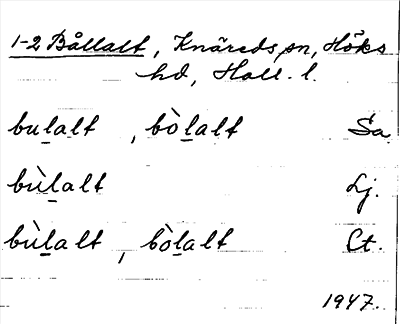 1-2 Bållalt, Knäreds sn, Höks
hd, Hall. l.
bulalt, bòlalt Sa.
bùlalt Lj.
bùlalt, bòlalt Ct.
1947.